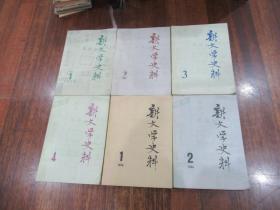 新文学史料
1
新文学史料
2
新文学史料
3
新文学史料
4
新文学史料
1
新文学史料
2